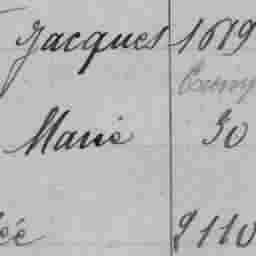 Jacques 1619
Marie 30
ée 2110